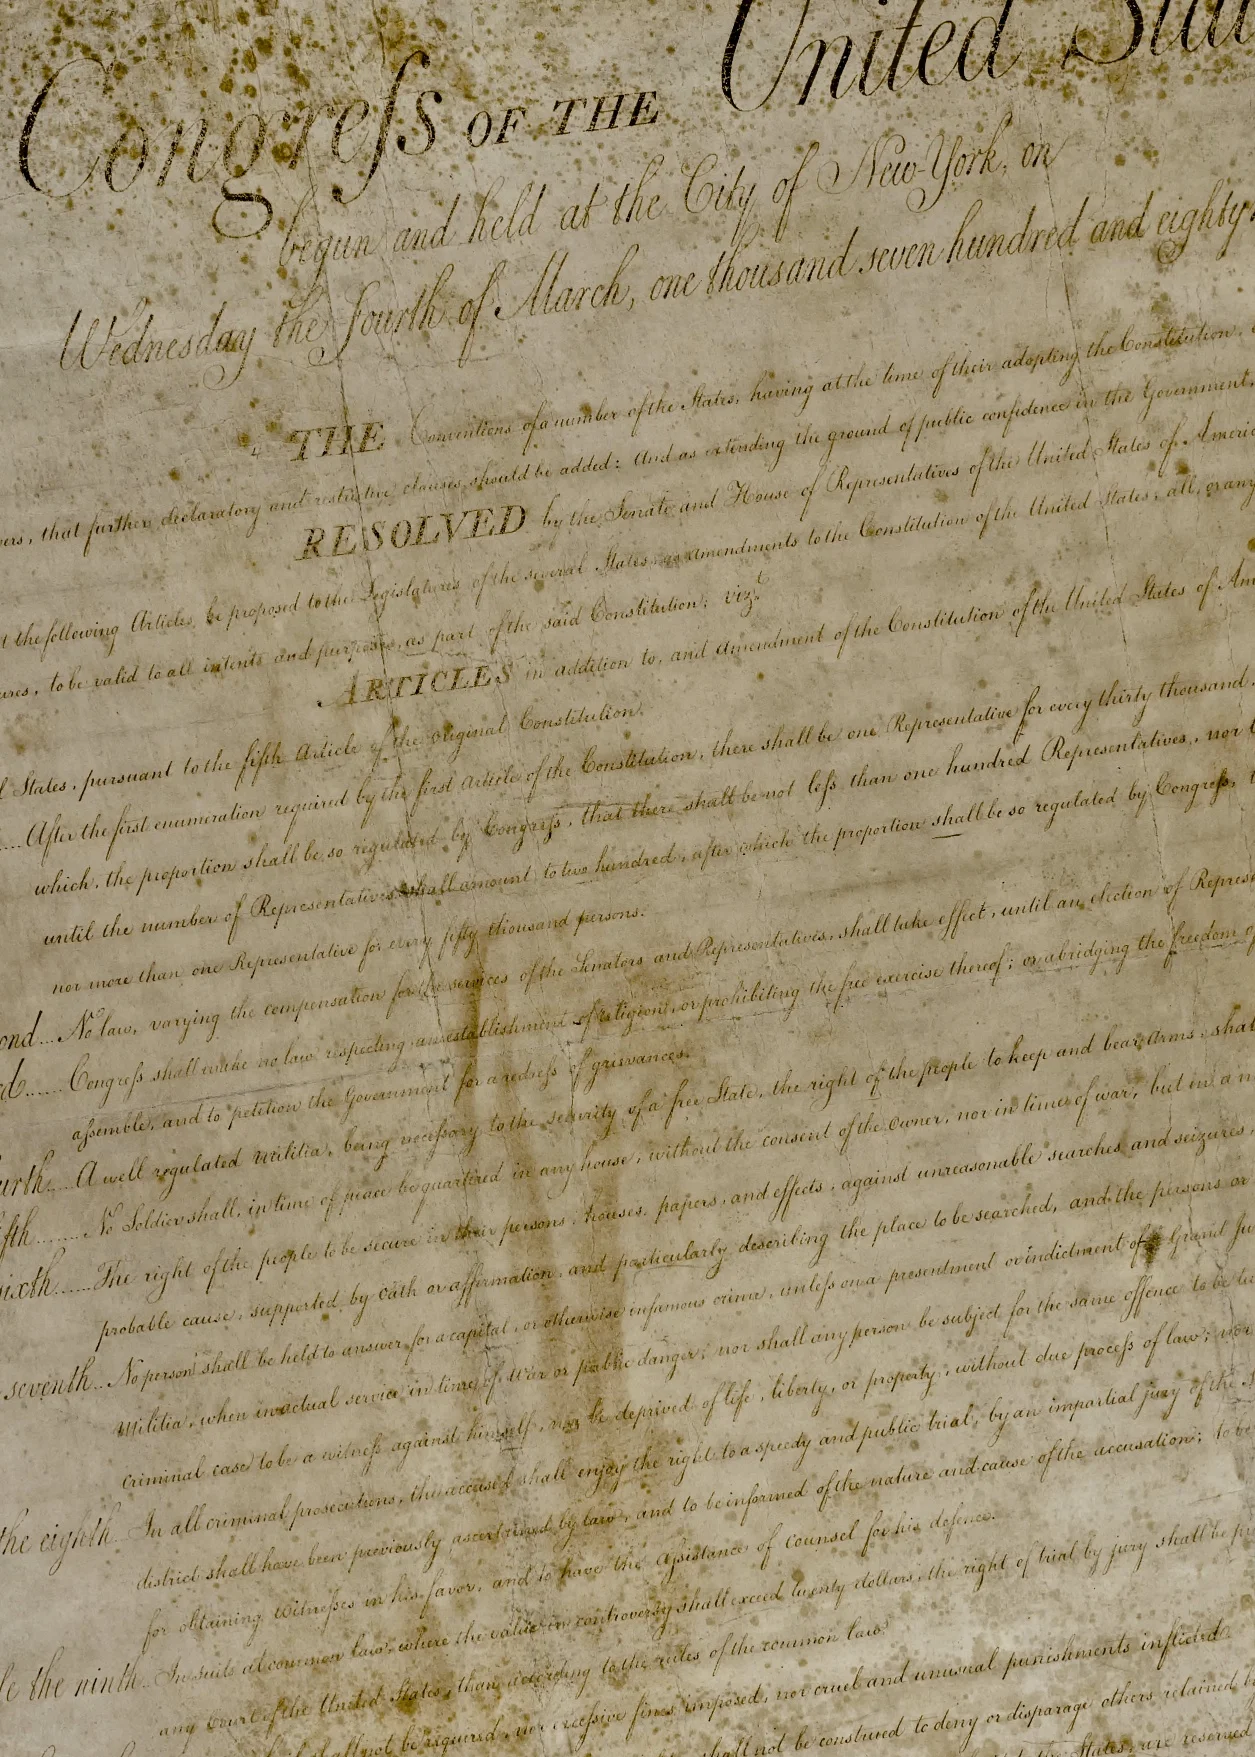 Congreſs OF THE United Stat
begun and held at the City of New-York, on
Wednesday the fourth of March, one thousand seven hundred and eighty
THE Conventions of a number of the States, having at the time of their adopting the Constitution,
ers, that further declaratory and restrictive clauses should be added: And as extending the ground of public confidence in the Government,
RESOLVED by the Senate and House of Representatives of the United States of Americ
t the following Articles be proposed to the Legislatures of the several States, as amendments to the Constitution of the United States, all, or any
ures, to be valid to all intents and purposes, as part of the said Constitution; vizt
ARTICLES in addition to, and amendment of the Constitution of the United States of Am
l States, pursuant to the fifth Article of the original Constitution.
.... After the first enumeration required by the first Article of the Constitution, there shall be one Representative for every thirty thousand,
which, the proportion shall be so regulated by Congreſs, that there shall be not leſs than one hundred Representatives, nor
until the number of Representatives shall amount to two hundred, after which the proportion shall be so regulated by Congreſs,
nor more than one Representative for every fifty thousand persons.
ond... No law, varying the compensation for the services of the Senators and Representatives, shall take effect, until an election of Represen
d...... Congreſs shall make no law respecting an establishment of religion, or prohibiting the free exercise thereof; or abridging the freedom o
aſsemble, and to petition the Government for a redreſs of grievances.
urth.... A well regulated militia, being neceſsary to the security of a free State, the right of the people to keep and bear arms, shal
ifth....... No Soldier shall, in time of peace be quartered in any house, without the consent of the owner, nor in time of war, but in a m
sixth..... The right of the people to be secure in their persons, houses, papers, and effects, against unreasonable searches and seizures,
probable cause, supported by oath or affirmation, and particularly describing the place to be searched, and the persons or
seventh.. No person shall be held to answer for a capital, or otherwise infamous crime, unleſs on a presentment or indictment of a Grand Ju
Militia, when in actual service in time of War or public danger; nor shall any person be subject for the same offence to be tw
criminal case to be a witneſs against himself, nor be deprived of life, liberty, or property, without due proceſs of law; nor
the eighth. In all criminal prosecutions, the accused shall enjoy the right to a speedy and public trial, by an impartial jury of the S
district shall have been previously ascertained by law, and to be informed of the nature and cause of the accusation; to be
for obtaining witneſses in his favor, and to have the aſsistance of counsel for his defence.
le the ninth.. In suits at common law, where the value in controversy shall exceed twenty dollars, the right of trial by jury shall be pr
any Court of the United States, than according to the rules of the common law.
shall not be required, nor exceſsive fines imposed, nor cruel and unusual punishments inflicted.
shall not be construed to deny or disparage others retained b
States, are reserved